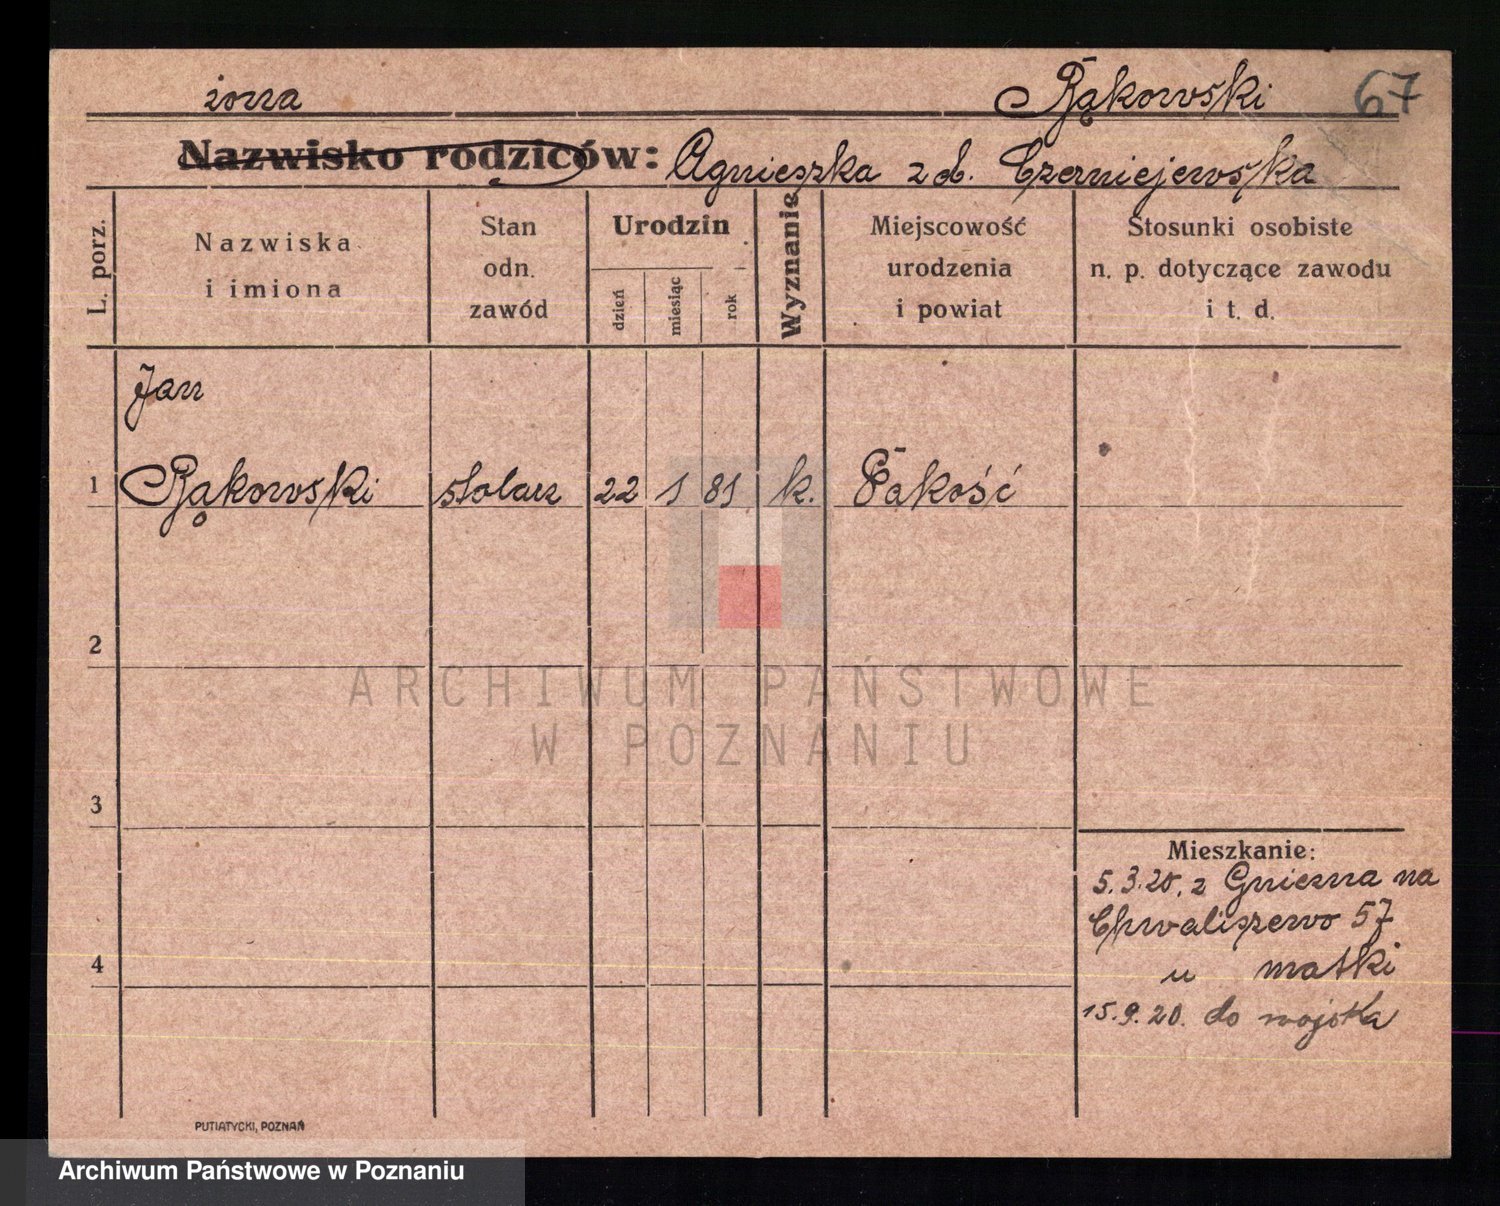 żona Bąkowski 67
Nazwisko rodziców: Agnieszka z d. Czerniejewska
L. porz.
Nazwiska
i imiona
Stan
odn.
zawód
Urodzin
dzień
miesiąc
rok
Wyznanie
Miejscowość
urodzenia
i powiat
Stosunki osobiste
n. p. dotyczące zawodu
i t. d.
Jan
1 Bąkowski stolarz 22 1 81 k. Pakość
2
3
4
Mieszkanie:
5.3.20. z Gniezna na
Chwaliszewo 57
u matki
15.9.20. do wojska
PUTIATYCKI, POZNAŃ
ARCHIWUM PAŃSTWOWE
W POZNANIU
Archiwum Państwowe w Poznaniu